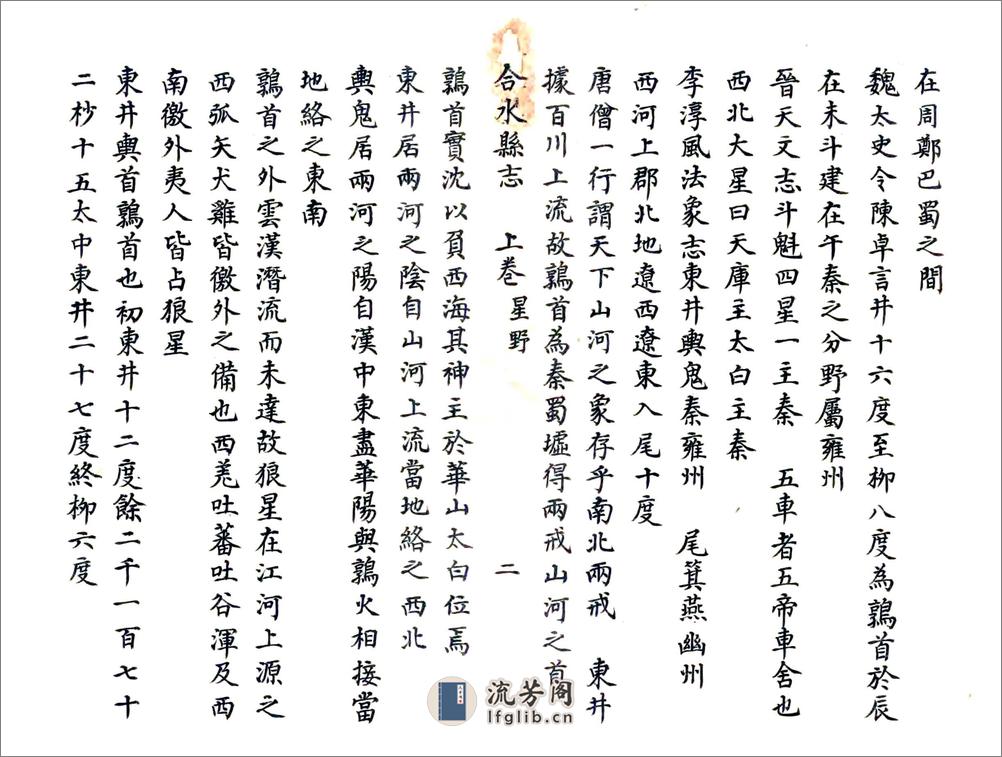 在周鄭巴蜀之間
魏太史令陳卓言井十六度至柳八度為鶉首於辰
在未斗建在午秦之分野屬雍州
晉天文志斗魁四星一主秦　五車者五帝車舍也
西北大星曰天庫主太白主秦
李淳風法象志東井輿鬼秦雍州　尾箕燕幽州
西河上郡北地遼西遼東入尾十度
唐僧一行謂天下山河之象存乎南北兩戒　東井
據百川上流故鶉首為秦蜀墟得兩戒山河之首
合水縣志　上卷　星野　二
鶉首實沈以負西海其神主於華山太白位焉
東井居兩河之陰自山河上流當地絡之西北
輿鬼居兩河之陽自漢中東盡華陽與鶉火相接當
地絡之東南
鶉首之外雲漢潛流而未達故狼星在江河上源之
西弧矢犬雞皆徼外之備也西羌吐蕃吐谷渾及西
南徼外夷人皆占狼星
東井輿首鶉首也初東井十二度餘二千一百七十
二杪十五太中東井二十七度終柳六度
流芳阁
lfglib.cn